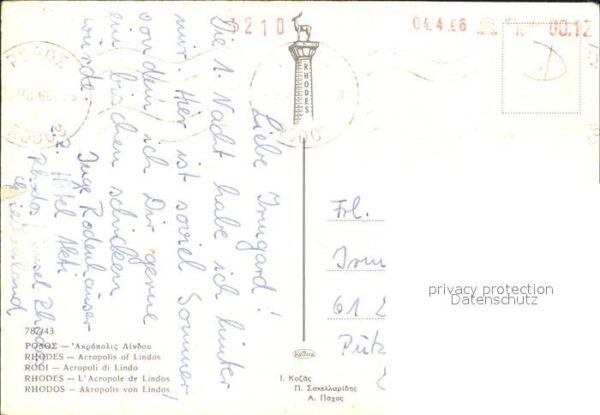 3210
04.4.66
00.12
ΡΟΔΟΣ
RODOS
RHODES
Liebe Irmgard!
Die 1. Nacht habe ich hinter
mir. Hier ist soviel Sommer,
von dem ich Dir gerne
ein bischen schicken
würde.
Inge Rodenhäuser
Hotel Akti
Rhodos Insel Rhodos
Griechenland
Frl.
Irm
61 
Pütz
privacy protection
Datenschutz
787/43
ΡΟΔΟΣ — Ἀκρόπολις Λίνδου
RHODES — Acropolis of Lindos
RODI — Acropoli di Lindo
RHODES — L'Acropole de Lindos
RHODOS — Akropolis von Lindos
Ι. Κοζᾶς
Π. Σακελλαρίδης
Α. Πάχος